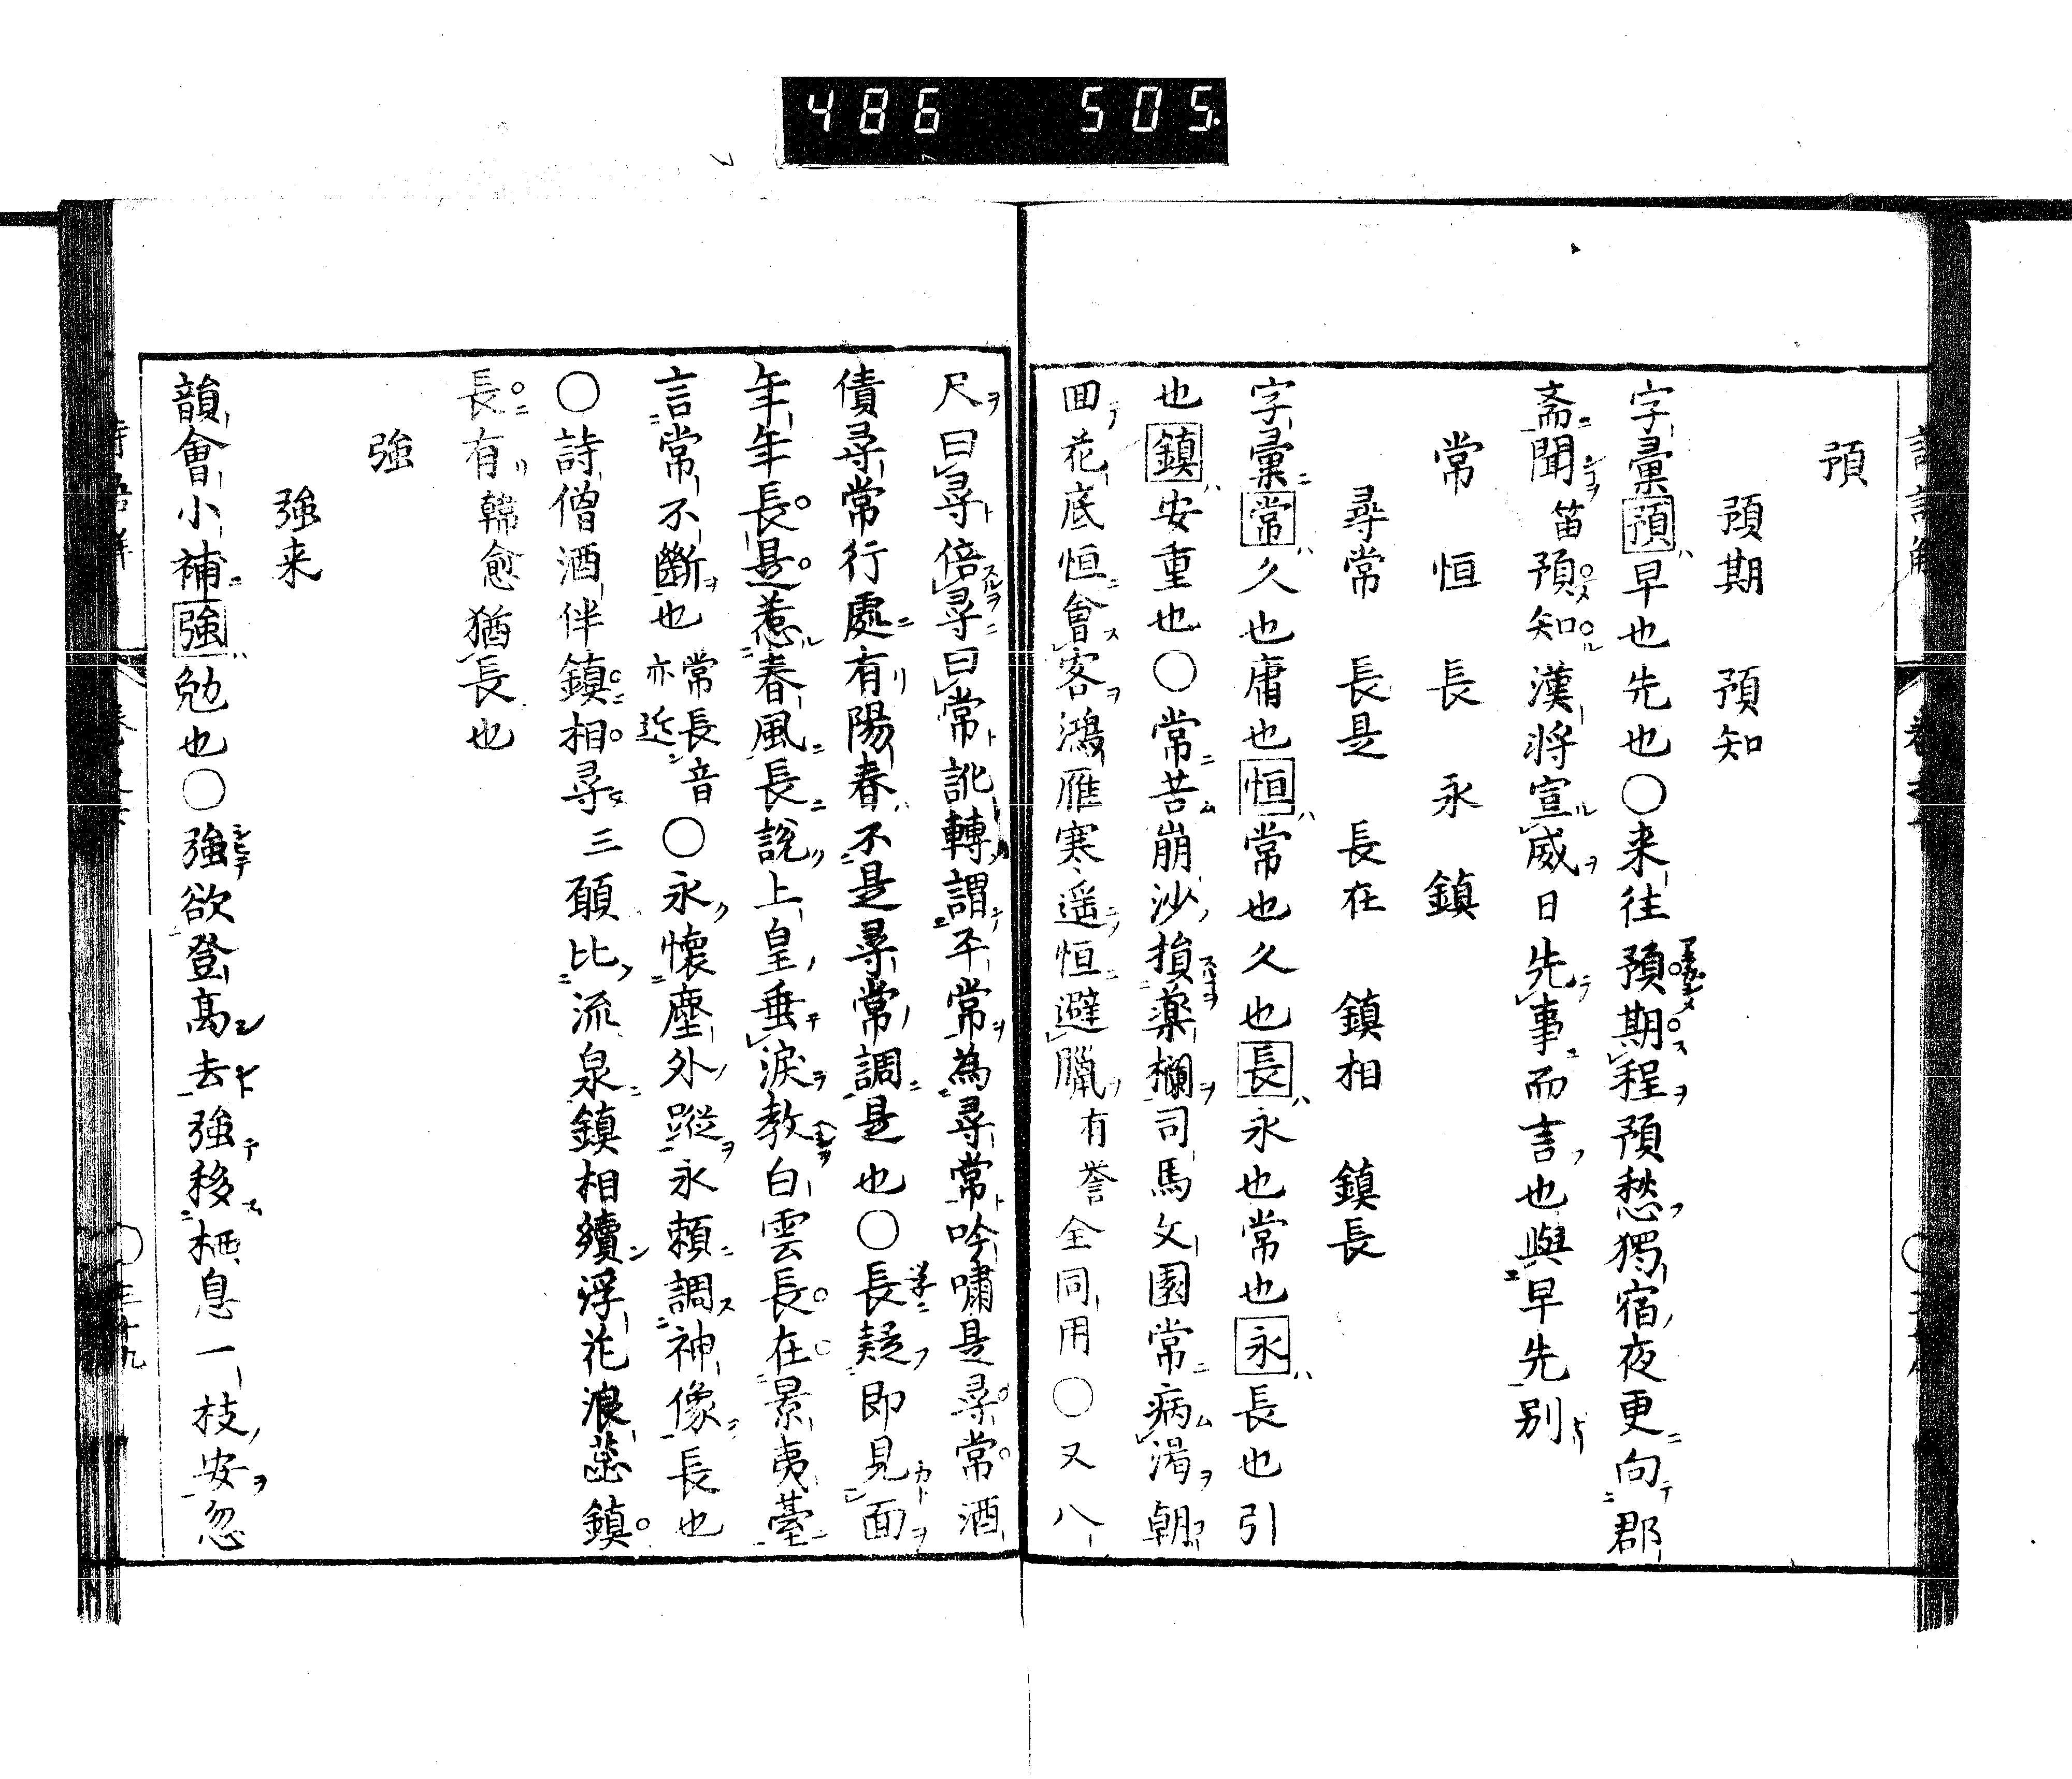 486 505.
預
預期 預知
字彙預早也先也〇来往預期程預愁獨宿夜更向郡
斎聞笛預知漢将宣威日先事而言也與早先别
常 恒 長 永 鎮
尋常 長是 長在 鎮相 鎮長
字彙常久也庸也恒常也久也長永也常也永長也引
也鎮安重也〇常苦崩沙損藥欄司馬文園常病渇朝
回花底恒會客鴻雁寒遥恒避臘有誉全同用〇又八
尺曰尋倍尋曰常訛轉謂平常為尋常吟嘯是尋常酒
債尋常行處有陽春不是尋常調是也〇長疑即見面
年年長是惹春風長説上皇垂涙教白雲長在景夷臺
言常不斷也常長音亦近〇永懐塵外蹤永頼調神像長也
〇詩僧酒伴鎮相尋三願比流泉鎮相續浮花浪蕊鎮
長有韓愈猶長也
強
強来
韻會小補強勉也〇強欲登高去強移栖息一枝安忽